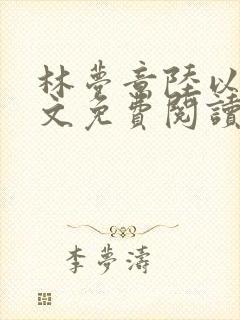 林夢章陸以
文免費閱讀
李夢濤